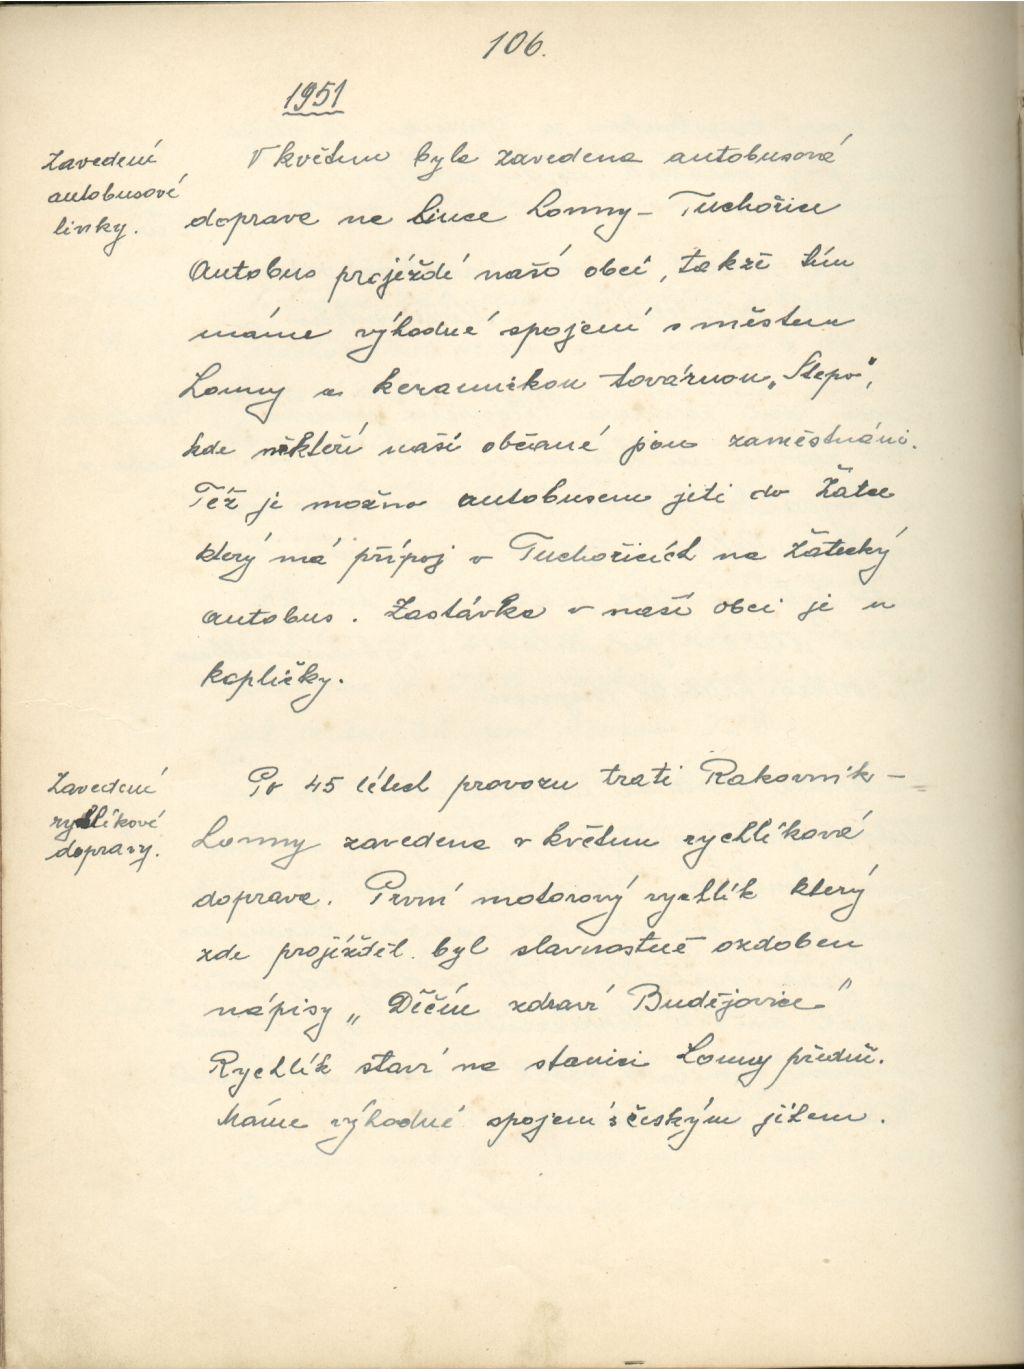 106.
1951
Zavedení
autobusové
linky.
V květnu byla zavedena autobusová
doprava na lince Louny – Tuchořice
Autobus projíždí naší obcí, takže tím
máme výhodné spojení s městem
Louny a keramikou továrnou „Stepo",
kde někteří naší občané jsou zaměstnáni.
Též je možno autobusem jeti do Žatce
který má přípoj v Tuchořicích na žatecký
autobus. Zastávka v naší obci je u
kapličky.
Zavedení
rychlíkové
dopravy.
Po 45 létech provozu trati Rakovník –
Louny zavedena v květnu rychlíková
doprava. První motorový rychlík který
zde projížděl byl slavnostně ozdoben
nápisy „Děčín zdraví Budějovice"
Rychlík staví na stanici Louny předm.
Máme výhodné spojení s českým jihem.